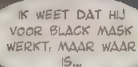 IK WEET DAT HIJ
VOOR BLACK MASK
WERKT, MAAR WAAR
IS...